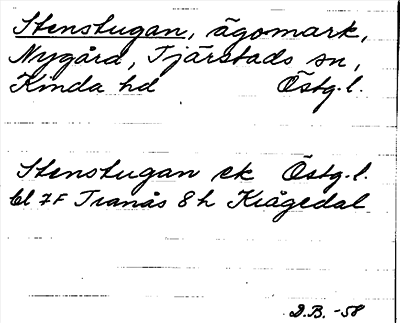 Stenstugan, ägomark,
Nygård, Tjärstads sn,
Kinda hd Östg.l.
Stenstugan ek Östg.l.
bl 7F Tranås 8h Krågedal
D.B. -58